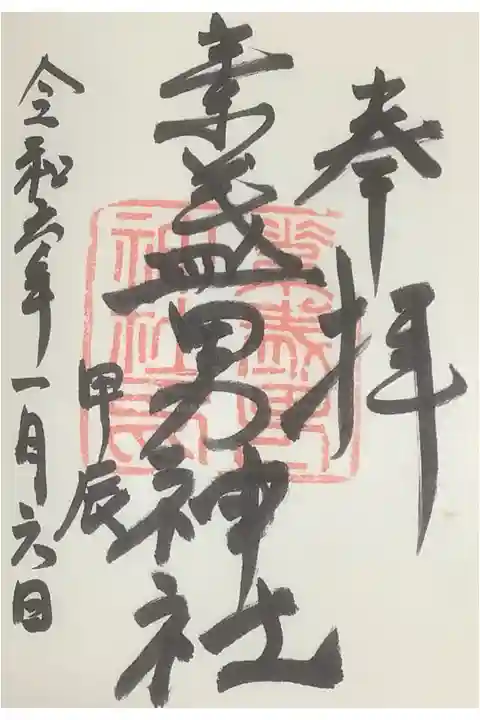 奉拝
素盞男神社
甲辰
令和六年一月六日